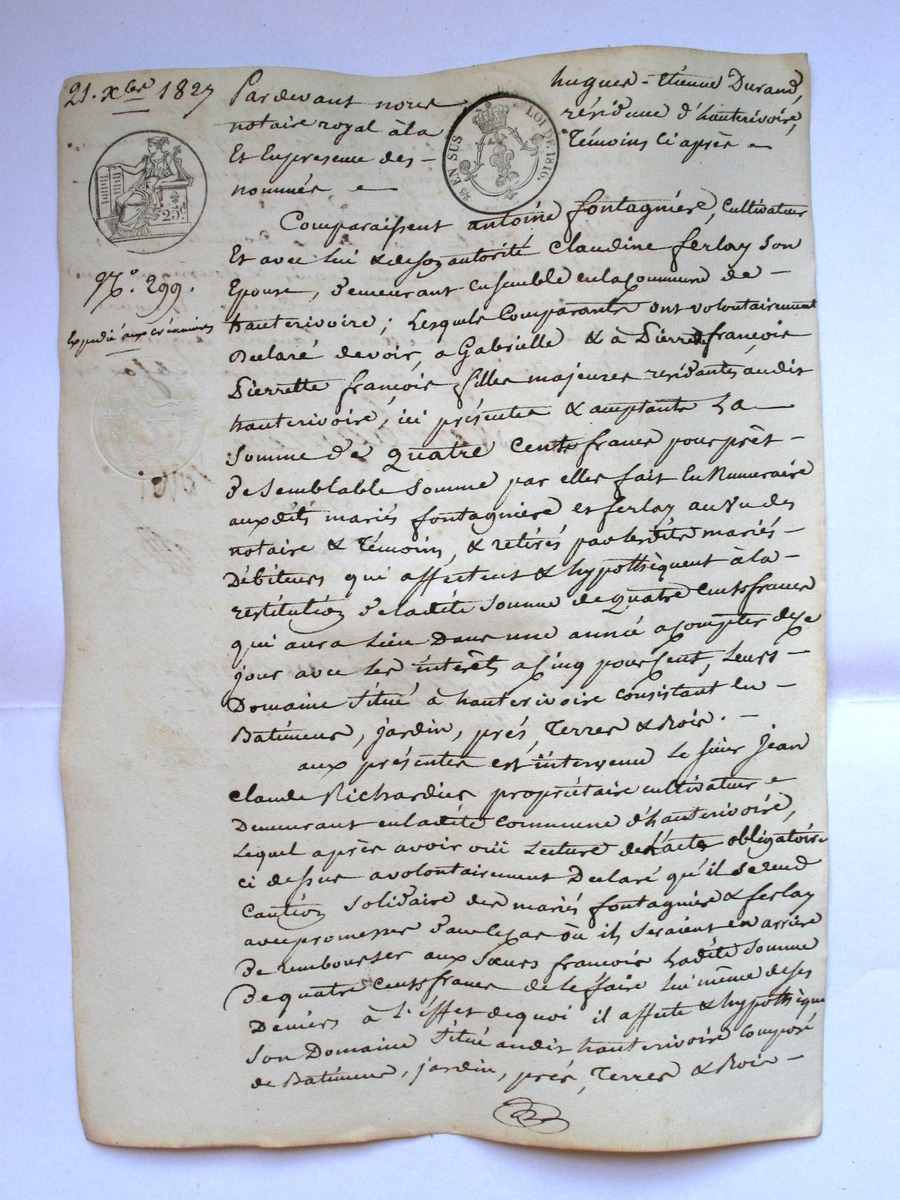 21. Xbre 1827
25c
No. 299.
Expédié aux créanciers
EN SUS LOI DE 1816.
Pardevant nous hugues-étienne Durand,
notaire royal à la résidence d'hauterivoire,
Et En presence des - Témoins ci après
nommés
Comparaissent antoine fontagnière, cultivateur
Et avec lui & de son autorité Claudine ferlay son
Epouse, demeurant ensemble en la commune de -
hauterivoire; Lesquels Comparants ont volontairement
Déclaré devoir, a Gabrielle & à Pierre françois
Pierrette françois filles majeures residantes audit
hauterivoire, ici présentes & acceptantes La
Somme de quatre cents francs pour prêt -
de semblable somme par elles fait En Numeraire
auxdits mariés fontagnière et ferlay au vu des
notaire & Témoins, & retirés par lesdits mariés -
Débiteurs qui affectent & hypothèquent à la -
restitution de ladite somme de quatre cents francs
qui aura lieu Dans une année a compter de ce
jour avec les intérêts a cinq pour cent, Leurs -
Domaine Situé à hauterivoire consistant En -
Batimens, jardin, prés, Terres & Bois. -
aux présentes est intervenu Le sieur Jean
Claude Richardier propriétaire cultivateur
Demeurant en ladite commune d'hauterivoire,
Lequel après avoir oui Lecture de l'acte obligatoire
ci dessus a volontairement Déclaré qu'il se rend
Caution Solidaire des mariés fontagnière & ferlay
avec promesse dans le cas où ils seraient en arrière
de rembourser aux sœurs françois Ladite Somme
de quatre cents francs de le faire lui même de ses
Deniers à l'effet de quoi il affecte & hypothèque
Son Domaine Situé audit hauterivoire composé
de Batimens, jardin, prés, Terres & Bois -